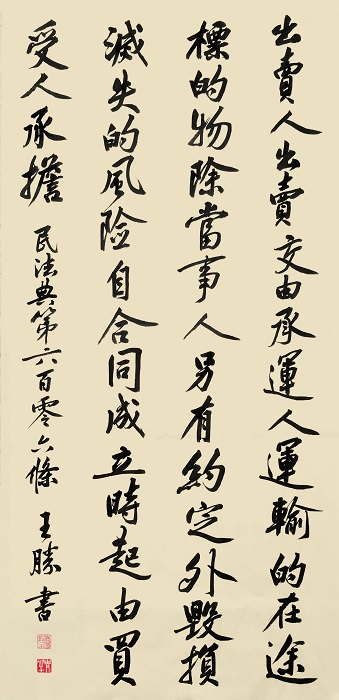 出賣人出賣交由承運人運輸的在途
標的物除當事人另有約定外毀損
滅失的風险自合同成立時起由買
受人承擔
民法典第六百零六條 王勝書